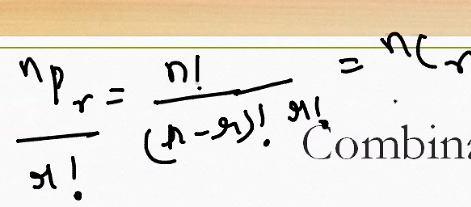 ⁿPᵣ / r! = n! / (n-r)! r! = ⁿCᵣ
Combina